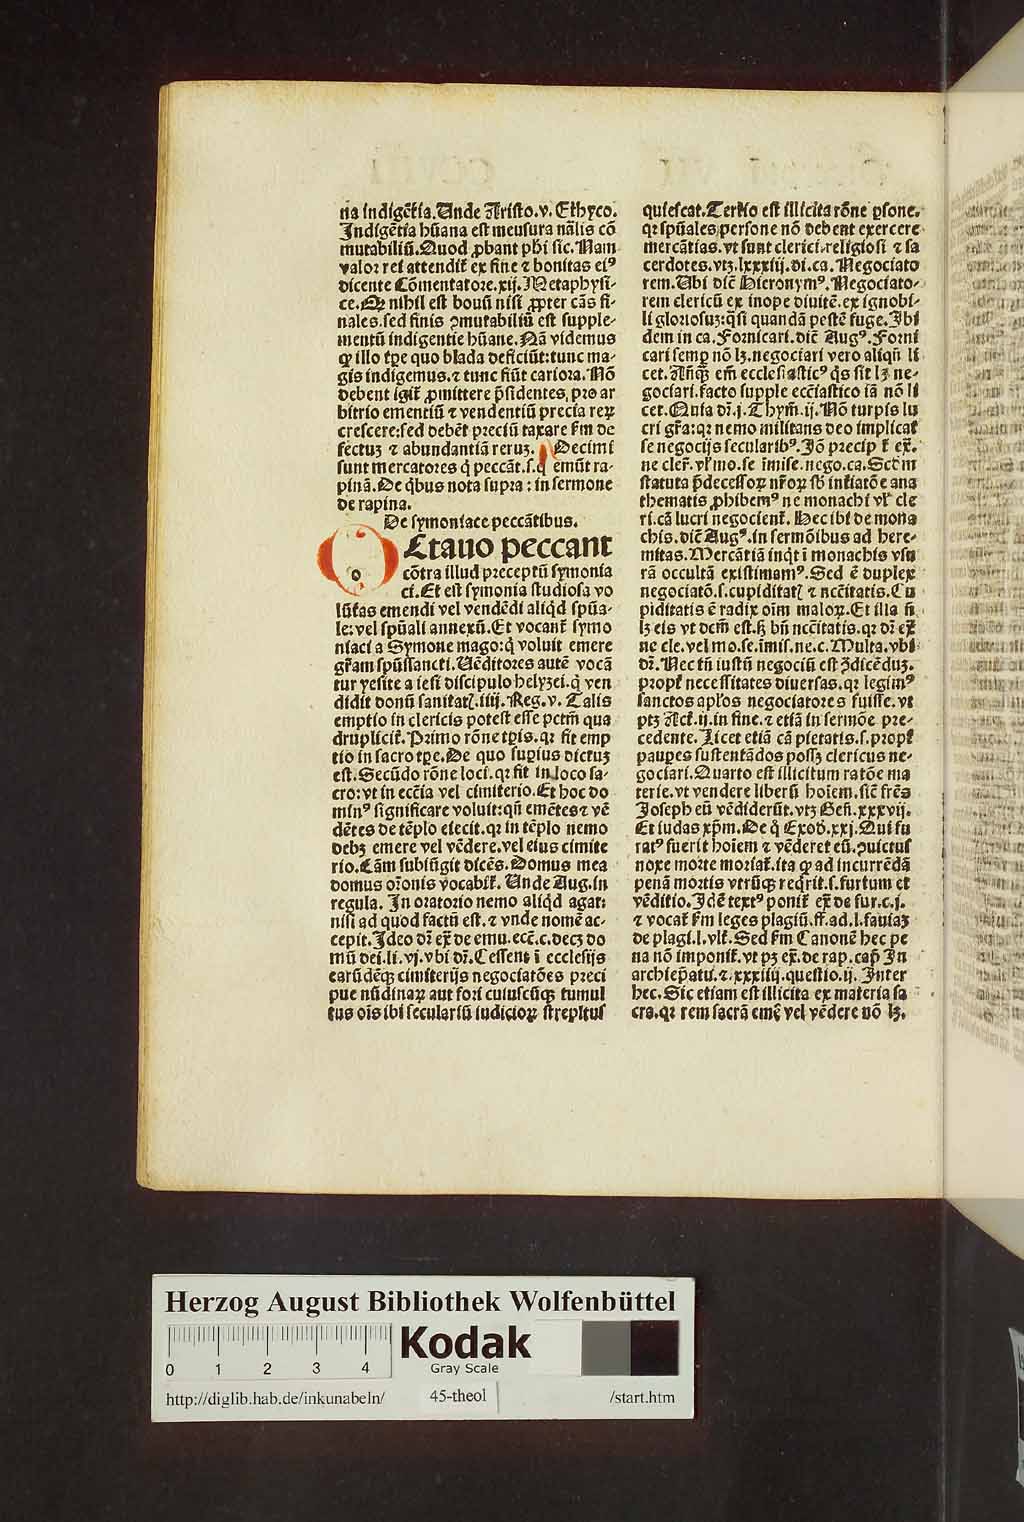 na indigẽtia. Unde Aristo. v. Ethyco.
Indigẽtia hũana est mensura nãlis cõ
mutabiliũ. Quod ꝓbant pħi sic. Nam
valor rei attendit̃ ex fine ⁊ bonitas eiꝰ
dicente Cõmentatore. xij. Metaphysi-
ce. Ꝙ nihil est bonũ nisi ꝓpter cãs fi-
nales. sed finis ꝯmutabiliũ est supple-
mentũ indigentie hũane. Nã videmus
ꝙ illo tp̃e quo blada deficiũt: tunc ma-
gis indigemus. ⁊ tunc fiũt cariora. Nõ
debent igit̃ ꝓmittere p̃sidentes, pro ar
bitrio ementiũ ⁊ vendentiũ precia reꝝ
crescere: sed debẽt preciũ taxare ẜm de
fectuꝫ ⁊ abundantiã reruꝫ. Decimi
sunt mercatores q̇ peccãt. s. q̇ emũt ra-
pinã. De q̇bus nota supra: in sermone
de rapina.
De symoniace peccãtibus.
o
Ctauo peccant
cõtra illud preceptũ symonia
ci. Et est symonia studiosa vo
lũtas emendi vel vendẽdi aliqd spũa-
le: vel spũali annexũ. Et vocant̃ symo
niaci a Symone mago: q̇ voluit emere
gr̃am spũssancti. Uẽditores autẽ vocã
tur yesite a iesi discipulo helyzei. q̇ ven
didit donũ sanitatꝭ. iiij. Reg. v. Talis
emptio in clericis potest esse pctm̃ qua
drupliciť. Primo rõne tp̃is. qꝛ fit emp
tio in sacro tp̃e. De quo sup̱ius dictuꝫ
est. Secũdo rõne loci. qꝛ fit in loco sa-
cro: vt in ecc̃ia vel cimiterio. Et hoc do
minꝰ significare voluit: qñ emẽtes ⁊ vẽ
dẽtes de tẽplo eiecit. qꝛ in tẽplo nemo
debꝫ emere vel vẽdere. vel eius cimite
rio. Cãm subiũgit dicẽs. Domus mea
domus or̃onis vocabit̃. Unde Aug. in
regula. In oratorio nemo aliqd agat:
nisi ad quod factũ est. ⁊ vnde nomẽ ac-
cepit. Ideo dr̃ ex̃ de emu. ecc̃. c. decꝫ do
mũ dei. li. vj. vbi dr̃. Cessent ĩ ecclesijs
earũdẽqꝫ cimiterijs negociatões preci
pue nũdinaꝝ aut fori cuiuscũqꝫ tumul
tus oĩs ibi seculariũ iudicioꝝ strepitus
quiescat. Tertio est illicita rõne ꝑsone.
qꝛ spũales persone nõ debent exercere
mercãtias. vt sunt clerici. religiosi ⁊ sa
cerdotes. vtꝫ. lxxxiij. di. ca. Negociato
rem. Ubi dic̃ Hieronymꝰ. Negociato-
rem clericũ ex inope diuitẽ. ex ignobi-
li gloriosuꝫ: q̃si quandã pestẽ fuge. Ibi
dem in ca. Fornicari. dic̃ Augꝰ. Forni
cari semꝑ nõ lꝫ. negociari vero aliqñ li
cet. Añqꝫ em̃ ecclesiasticꝰ q̇s sit lꝫ ne-
gociari. facto supple ecc̃iastico iã nõ li
cet. Quia dr̃. j. Thym̃. ij. Nõ turpis lu
cri gr̃a: qꝛ nemo militans deo implicat
se negocijs secularibꝰ. Jõ precipit̃ ex̃.
ne cler̃. vl̃ mo. se ĩmise. nego. ca. Scd̃m
statuta p̃decessoꝝ nr̃oꝝ sb̃ inťiatõe ana
thematis ꝓhibemꝰ ne monachi vl̃ cle
ri. cã lucri negocient̃. Hec ibi de mona
chis. dic̃ Augꝰ. in sermõibus ad here-
mitas. Mercãtiã inqt ĩ monachis vsu
rã occultã existimamꝰ. Sed ẽ duplex
negociatõ. s. cupiditatꝭ ⁊ ncc̃itatis. Cu
piditatis ẽ radix oĩm maloꝝ. Et illa ñ
lꝫ eis vt dcm̃ est. ß bñ ncc̃itatis. qꝛ dr̃ ex̃
ne cle. vel mo. se. ĩmis. ne. c. Multa. vbi
dr̃. Nec tñ iustũ negociũ est ꝯ̃dicẽduꝫ.
propť necessitates diuersas. qꝛ legimꝰ
sanctos apl̃os negociatores fuisse. vt
ptꝫ Act̃. ij. in fine. ⁊ etiã in sermõe pre-
cedente. Licet etiã cã pietatis. s. propť
pauꝑes sustentãdos possꝫ clericus ne-
gociari. Quarto est illicitum ratõe ma
terie. vt vendere liberũ hoĩem. sic̃ fr̃es
Joseph eũ vẽdiderũt. vtꝫ Geñ. xxxvij.
Et iudas xp̃m. De q̇ Exod̃. xxj. Qui fu
ratꝰ fuerit hoĩem ⁊ vẽderet eũ. ꝯuictus
noxe morte moriat̃. ita ꝙ ad incurrẽdã
penã mortis vtrũqꝫ reqrit̃. s. furtum et
vẽditio. Idẽ textꝰ ponit̃ ex̃ de fur. c. j.
⁊ vocat̃ ẜm leges plagiũ. ff. ad. l. fauiaꝫ
de plagi. l. vlt̃. Sed ẜm Canonẽ hec pe
na nõ imponit̃. vt pꝫ ex̃. de rap. cap̃ In
archiep̃atu. ⁊. xxxiiij. questio. ij. Inter
hec. Sic etiam est illicita ex materia sa
cra. qꝛ rem sacrã emẽ vel vẽdere nõ lꝫ.
Herzog August Bibliothek Wolfenbüttel
0 1 2 3 4
Kodak
Gray Scale
http://diglib.hab.de/inkunabeln/ 45-theol /start.htm